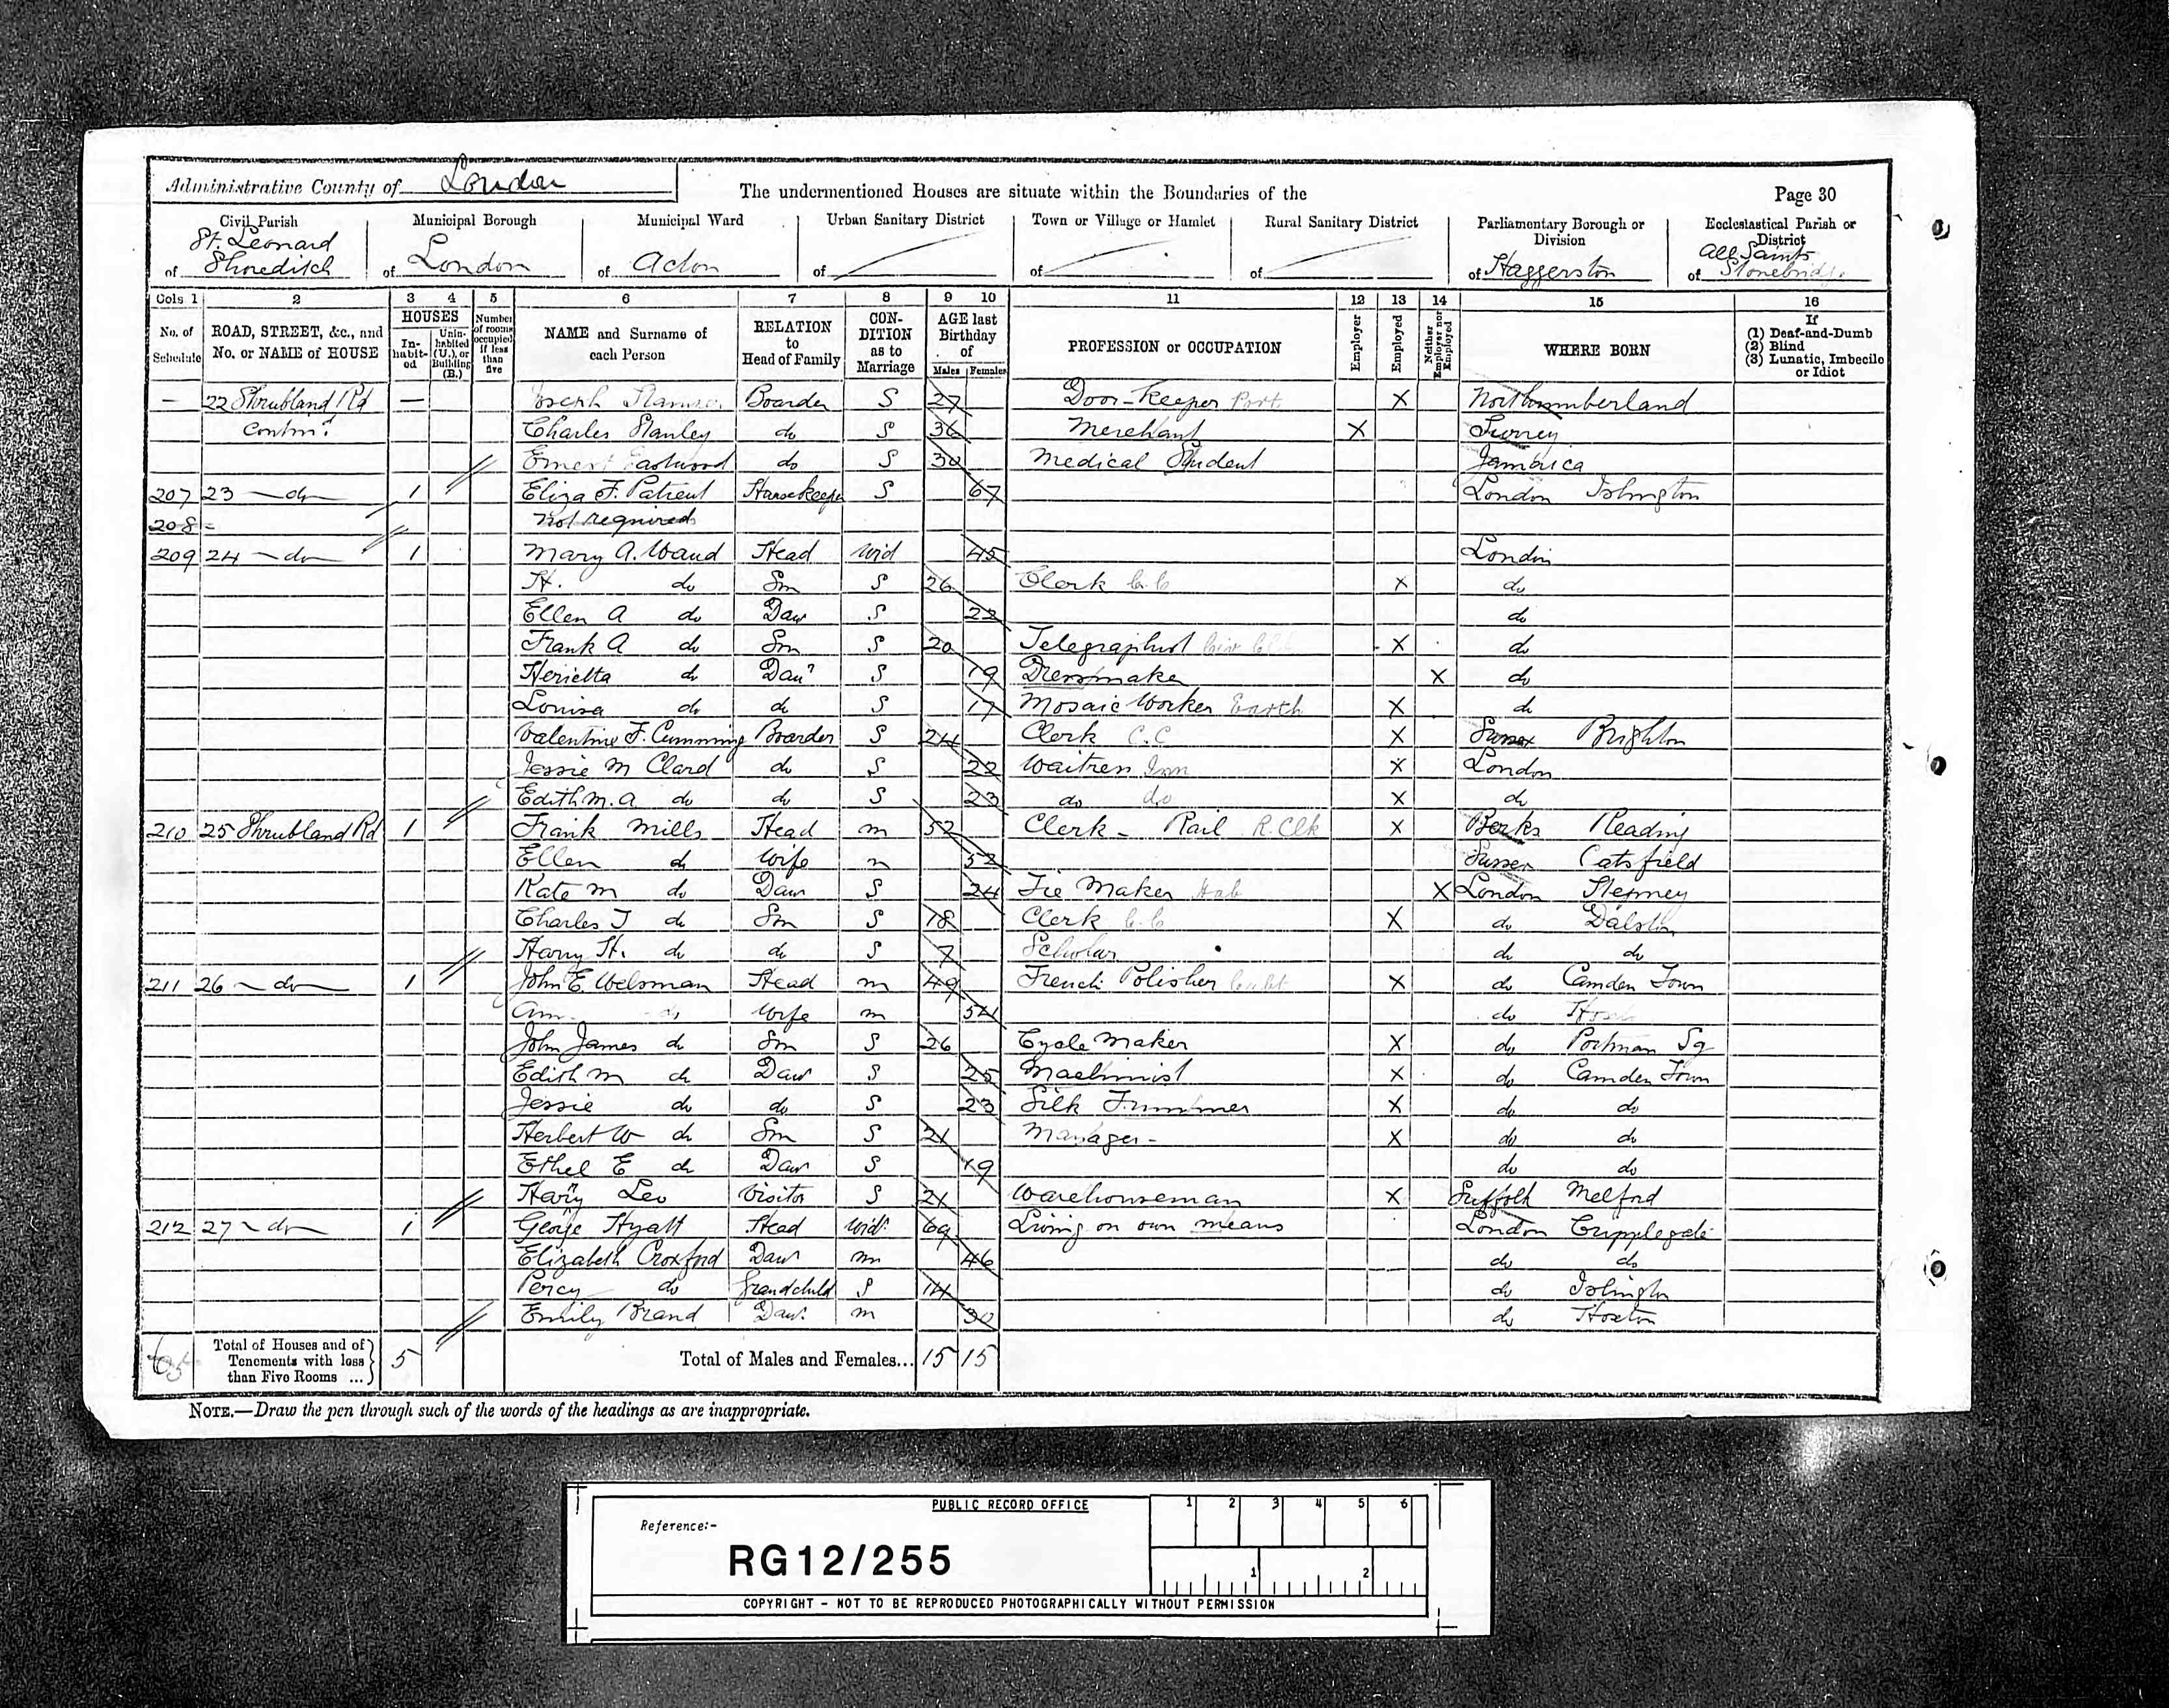 Administrative County of London
The undermentioned Houses are situate within the Boundaries of the
Page 30
Civil Parish of St. Leonard Shoreditch
Municipal Borough of London
Municipal Ward of Acton
Urban Sanitary District of
Town or Village or Hamlet of
Rural Sanitary District of
Parliamentary Borough or Division of Haggerston
Ecclesiastical Parish or District of All Saints Stonebridge
Cols 1 2 3 4 5 6 7 8 9 10 11 12 13 14 15 16
No. of Schedule
ROAD, STREET, &c., and No. or NAME of HOUSE
HOUSES
In-habit-ed
Unin-habited (U.), or Building (B.)
Number of rooms occupied if less than five
NAME and Surname of each Person
RELATION to Head of Family
CON-DITION as to Marriage
AGE last Birthday of
Males Females
PROFESSION or OCCUPATION
Employer
Employed
Neither Employer nor Employed
WHERE BORN
If (1) Deaf-and-Dumb (2) Blind (3) Lunatic, Imbecile or Idiot
— 22 Shrubland Rd — Joseph Boarder S 27 Door-Keeper Port. X Northumberland
Contin? Charles Stanley do S 36 Merchant X Surrey
Ernest Eastwood do S 30 Medical Student Jamaica
207 23 — do — 1 Eliza F. Patient Housekeeper S 67 London Islington
208 = Not required
209 24 — do 1 Mary A. Waud Head Wid 45 London
H. do Son S 26 Clerk C.C X do
Ellen A do Daur S 22 do
Frank A do Son S 20 Telegraphist X do
Herietta do Daur S 19 Dressmaker X do
Louisa do do S 17 Mosaic Worker Earth X do
Valentine F. Cumming Boarder S 24 Clerk C.C X Sussex Brighton
Jessie M Clard do S 22 Waitress Inn X London
Edith M. A do do S 23 do do X do
210 25 Shrubland Rd 1 Frank Mills Head m 52 Clerk - Rail R. Clk X Berks Reading
Ellen do Wife m 52 Sussex Catsfield
Kate M do Daur S 24 Tie Maker Hab X London Stepney
Charles J do Son S 18 Clerk C.C X do Dalston
Harry H. do do S 7 Scholar do do
211 26 — do — 1 John E Welsman Head m 49 French Polisher X do Camden Town
Ann do Wife m 54 do
John James do Son S 26 Cycle Maker X do Portman Sq
Edith M do Daur S 25 Machinist X do Camden Town
Jessie do do S 23 Silk Trimmer X do do
Herbert W do Son S 21 Manager - X do do
Ethel E do Daur S 19 do do
Harry Leo Visitor S 21 Warehouseman X Suffolk Melford
212 27 — do — 1 George Hyatt Head Widr 69 Living on own means London Cripplegate
Elizabeth Croxford Daur m 46 do do
Percy do Grandchild S 14 do Islington
Emily Brand Daur. m 30 do Hoxton
Total of Houses and of Tenements with less than Five Rooms ... 5
Total of Males and Females... 15 15
NOTE.—Draw the pen through such of the words of the headings as are inappropriate.
PUBLIC RECORD OFFICE
1 2 3 4 5 6
Reference:-
RG12/255
1 2
COPYRIGHT - NOT TO BE REPRODUCED PHOTOGRAPHICALLY WITHOUT PERMISSION